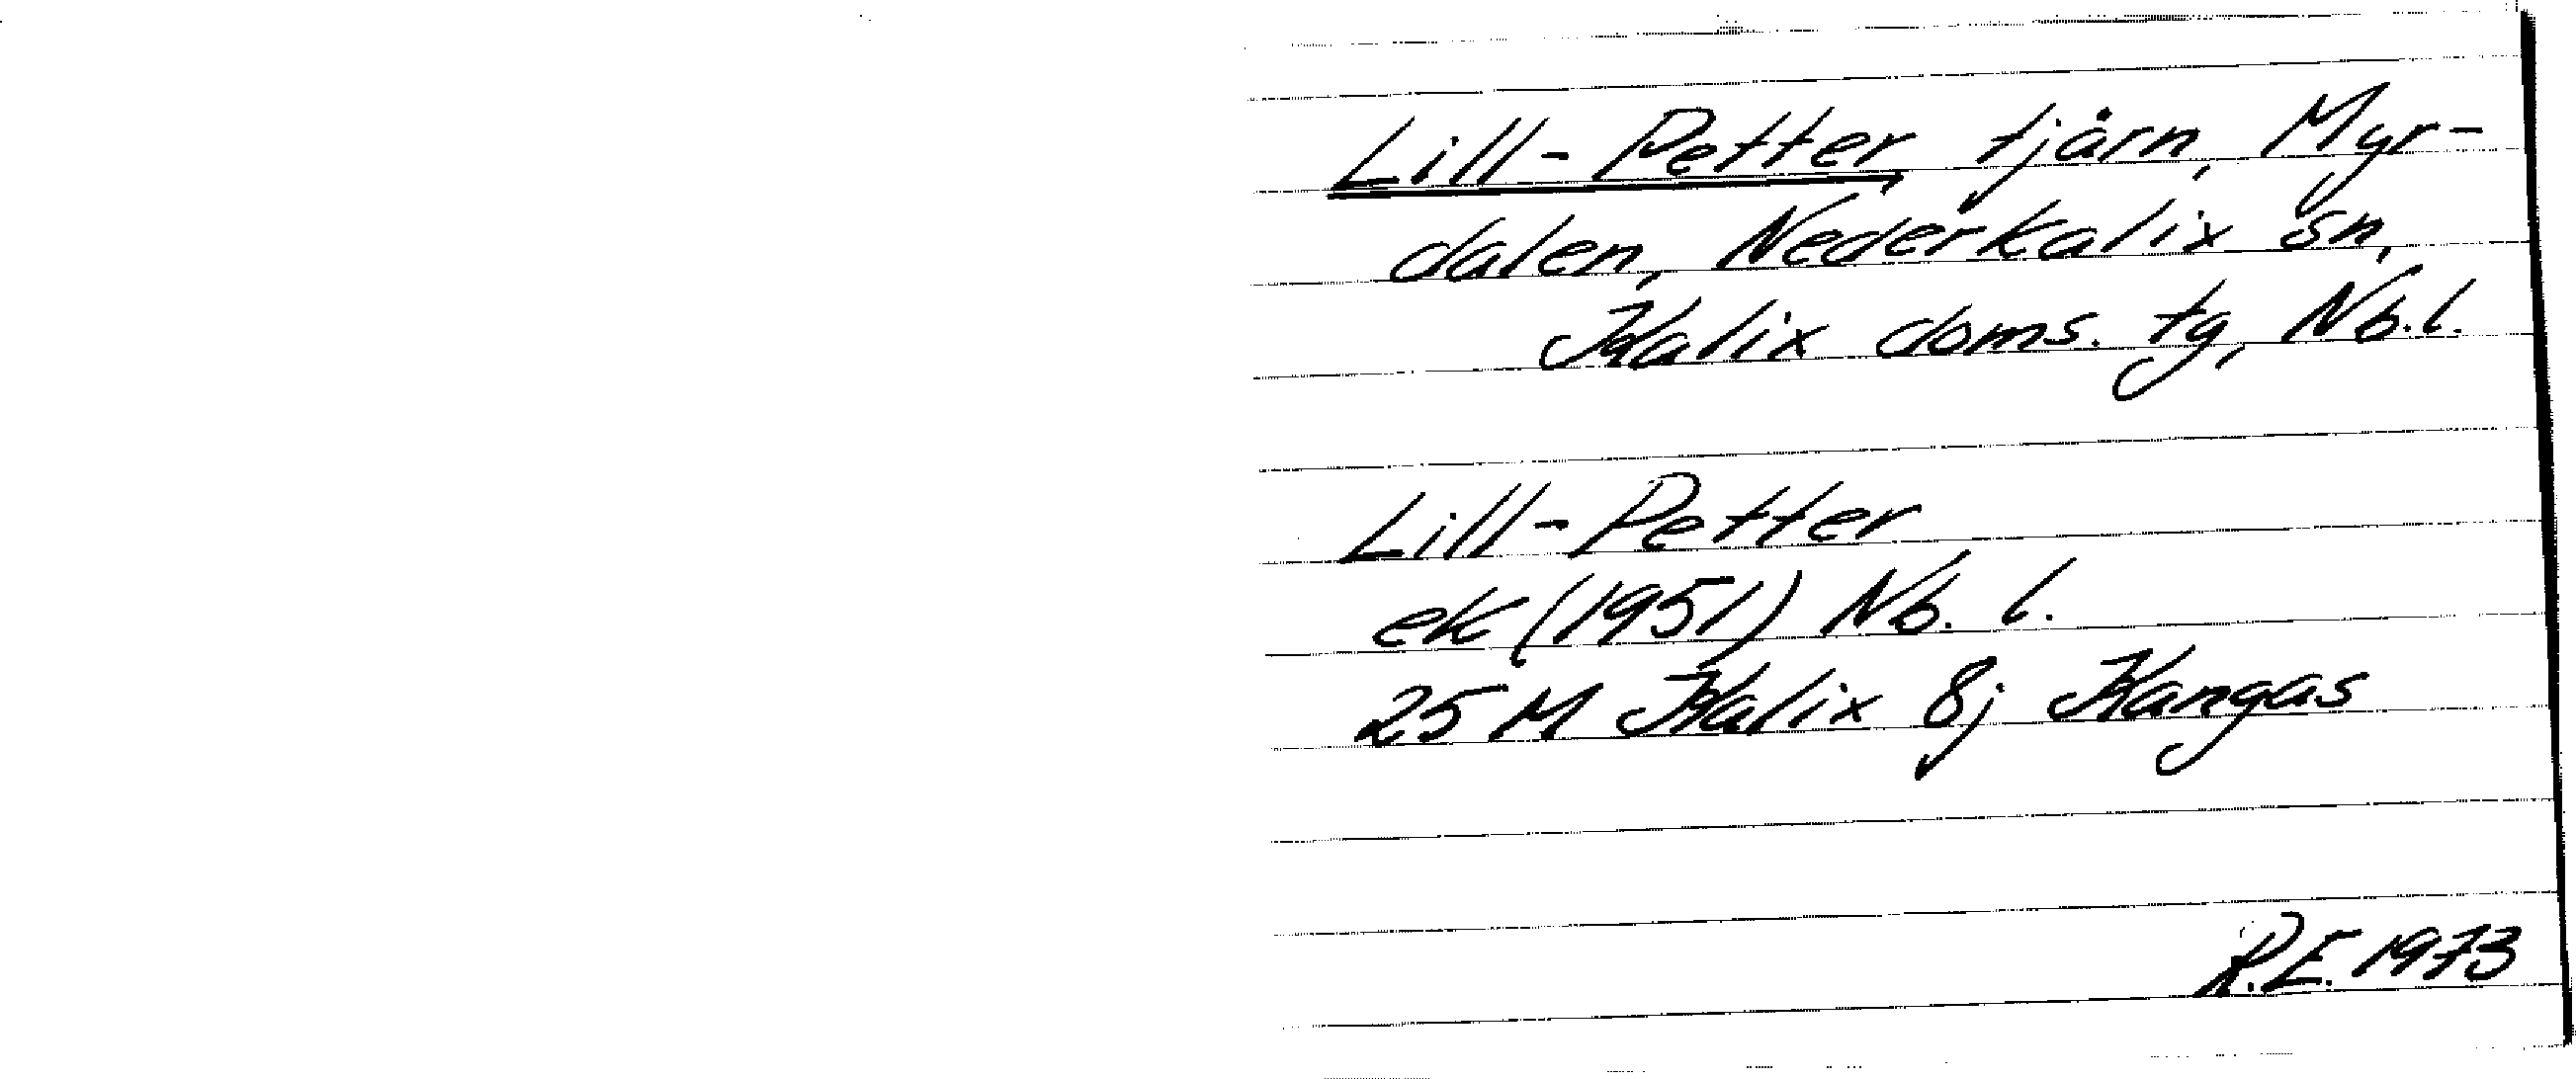 Lill-Petter, tjärn, Myr-
dalen, Nederkalix sn,
Kalix doms. tg, Nb.l.
Lill-Petter
ek (1951) Nb. l.
25 M Kalix 8j Kangas
R.E. 1973